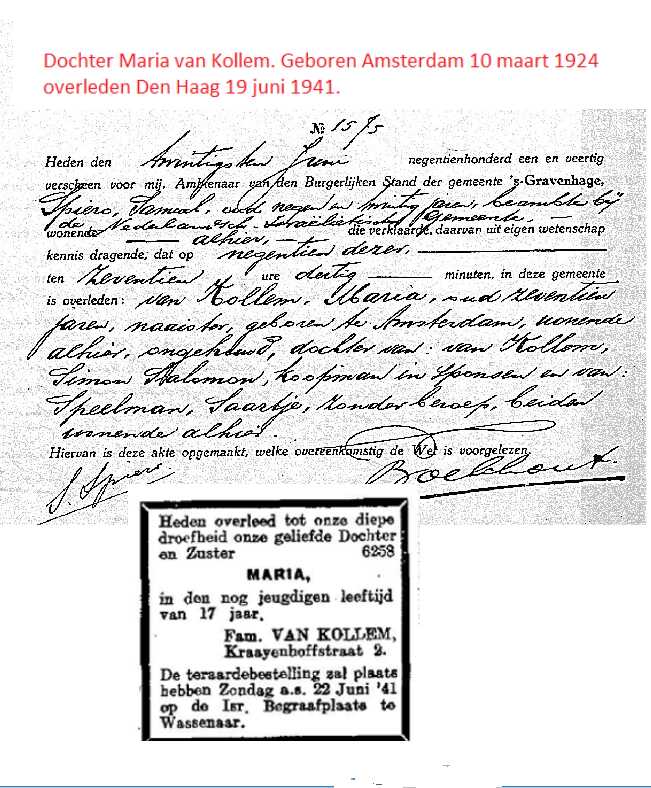 Dochter Maria van Kollem. Geboren Amsterdam 10 maart 1924
overleden Den Haag 19 juni 1941.
№ 1575
Heden den twintigsten Juni negentienhonderd een en veertig
verscheen voor mij, Ambtenaar van den Burgerlijken Stand der gemeente 's-Gravenhage,
Spiero, Samuel, oud negen en twintig jaren, beambte bij
de Nederlandsch-Israëlietische Gemeente,
wonende alhier, die verklaarde, daarvan uit eigen wetenschap
kennis dragende, dat op negentien dezer,
ten zeventien ure dertig minuten, in deze gemeente
is overleden: van Kollem, Maria, oud zeventien
jaren, naaister, geboren te Amsterdam, wonende
alhier, ongehuwd, dochter van: van Kollem,
Simon Salomon, koopman in sponsen en van:
Speelman, Saartje, zonder beroep, beiden
wonende alhier.
Hiervan is deze akte opgemaakt, welke overeenkomstig de Wet is voorgelezen.
S. Spiero
Heden overleed tot onze diepe
droefheid onze geliefde Dochter
en Zuster 6258
MARIA,
in den nog jeugdigen leeftijd
van 17 jaar.
Fam. VAN KOLLEM,
Kraayenhoffstraat 2.
De teraardebestelling zal plaats
hebben Zondag a.s. 22 Juni '41
op de Isr. Begraafplaats te
Wassenaar.